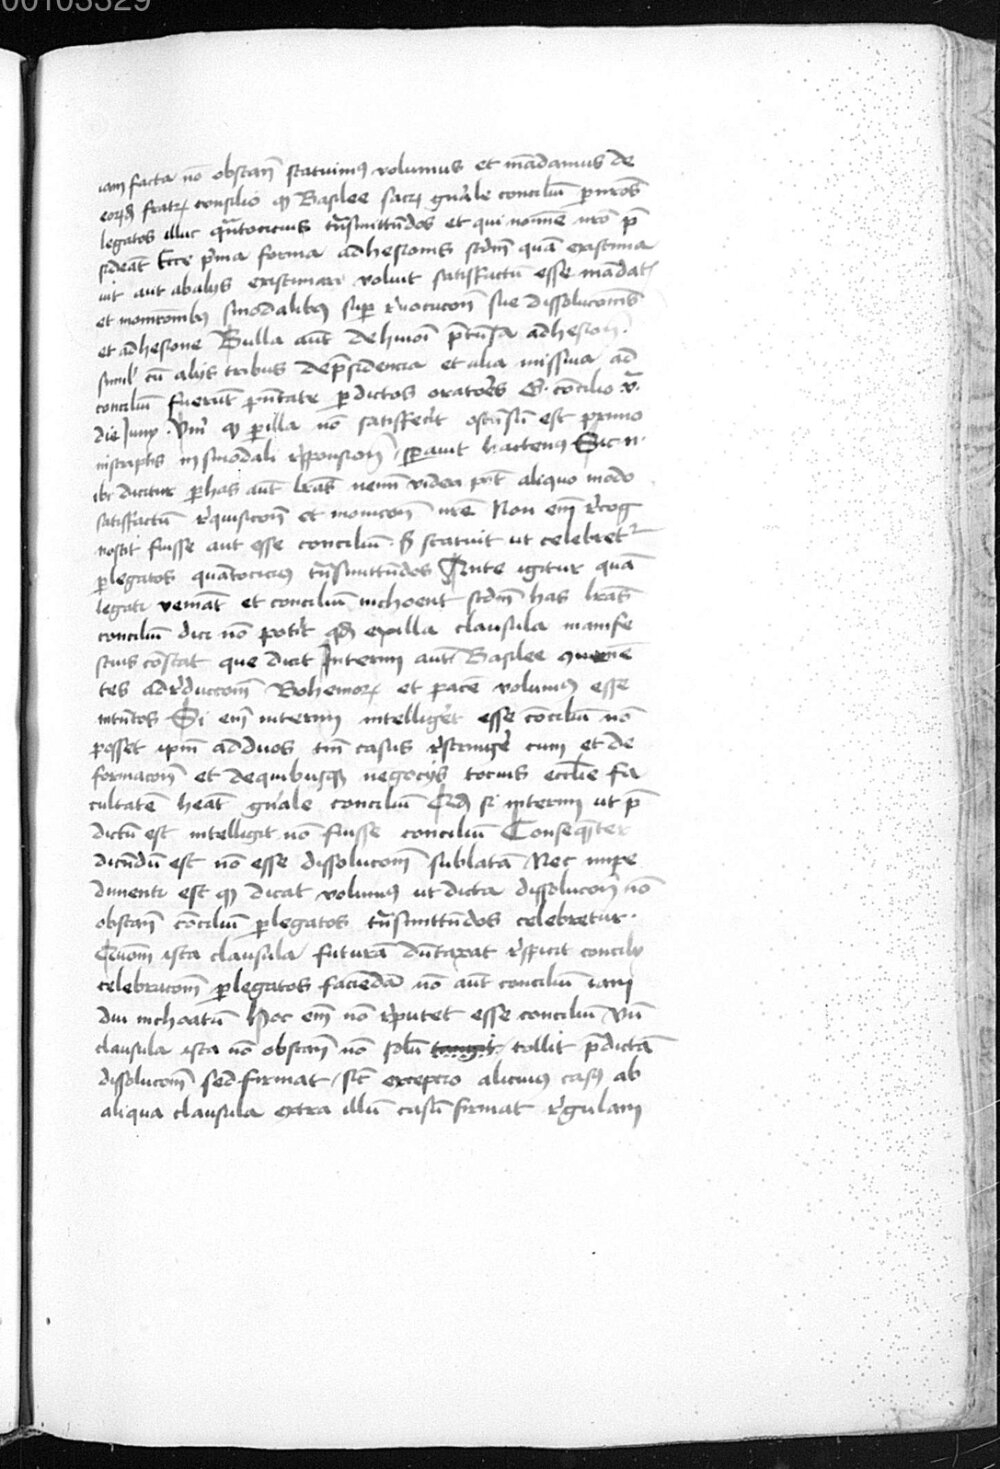 00103329
iam facta nō obstan̄ statuimꝰ volumus et mādamus de
eorūd̄ fratrꝝ consilio qꝫ Basilee sacrꝝ gn̄rale conciliū ꝑ nr̄os
legatos illuc qūtocicius tr̄nsmittūdos et qui nomīe nr̄o p̄
sideāt Ecce pr̄ma forma adhesionis scdm̄ quā existima
uit aut ab alijs existimari voluit satisfactū esse mandat
et monicōnibꝫ sinodalibꝫ suꝑ reuocacōn̄ sue dissolucōnis
et adhesione Bulla aut̄ dehm̄oi p̄tn̄sa adhesion̄.
simul cū alijs tribus de p̄sidencia et alia missiua ad
conciliū fuerūt pn̄tate ꝑ dictos oratores S. concilio v.
die Junij. Vn̄ qꝫ ꝑ illa nō satisfecit ostn̄sū est primo
in scriptis in sinodali rn̄sponsion̄ / Sic n.
ibi dicitur ꝑ has aut̄ lr̄as nemī videri pōt aliquo modo
satisfactū reqūisicōn̄ et monicōn̄ nr̄e Non em̄ recog
noscit fuisse aut esse conciliū. s̄ statuit ut celebret
ꝑ legatos quātociciꝰ tr̄nsmittūdos Ante igitur quā
legati veniāt et conciliū inchoent scdm̄ has lr̄as
conciliū dici nō poterit qd̄ ex illa clausula manife
stius cōstat que dicit Interim aut̄ Basilee ꝯueniē
tes ad reduccōn̄ Bohemorꝝ et pacē volumꝰ esse
intn̄tos Si em̄ interim intelligeret esse conciliū nō
posset ipm̄ ad duos tm̄ casus restringere cum et de
formacōn̄ et de quibuscꝫ negocijs tocius ecclīe fa
cultatē heāt gn̄rale conciliū Qd̄ si interim ut p̄
dictū est intelligit nō fuisse conciliū Consequēter
dicn̄dū est nō esse dissolucōn̄ sublatā Nec impe
dimenti est qꝫ dicat volumꝰ ut dicta dissolucōn̄ nō
obstan̄ conciliū ꝑ legatos tr̄nsmittūdos celebretur.
Quom̄ ista clausula futurā dūtaxat respicit concilij
celebracōn̄ ꝑ legatos faciēdā nō aut̄ conciliū iam
diu inchoatū Hoc em̄ nō reputet esse conciliū Vn̄
clausula ista nō obstan̄ nō solū tangit tollit p̄dictā
dissolucōn̄ sed firmat / sic̄ excepcio alicuiꝰ casꝰ ab
aliqua clausula extra illū casū firmat regulam